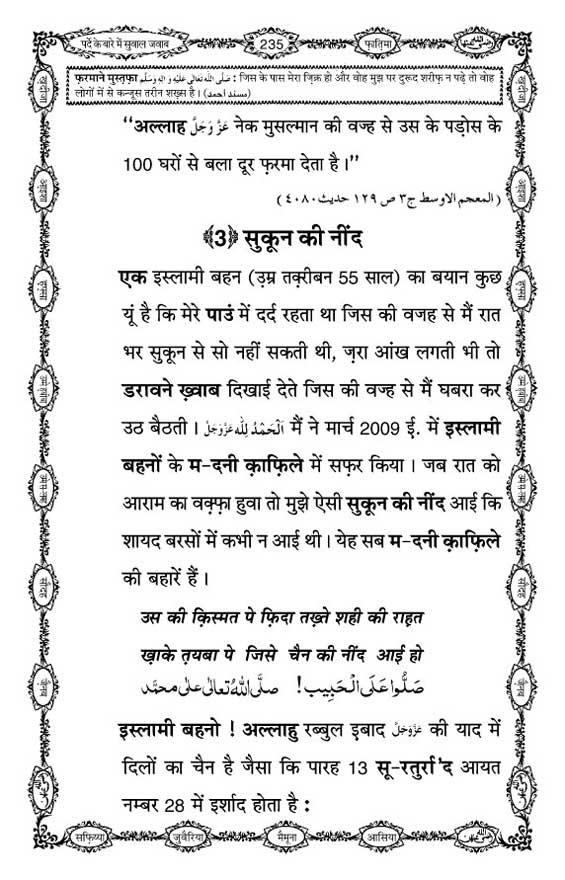 पर्दे के बारे में सुवाल जवाब
235
फ़ातिमा
फ़रमाने मुस्तफ़ा صَلَّى اللهُ تَعَالٰى عَلَيْهِ وَاٰلِهٖ وَسَلَّم : जिस के पास मेरा ज़िक्र हो और वोह मुझ पर दुरूद शरीफ़ न पढ़े तो वोह
लोगों में से कन्जूस तरीन शख़्स है। (مسند احمد)
"अल्लाह عَزَّ وَجَلَّ नेक मुसल्मान की वज्ह से उस के पड़ोस के
100 घरों से बला दूर फ़रमा देता है।"
(المعجم الاوسط ج٣ ص ١٢٩ حديث ٤٠٨٠)
﴾3﴿ सुकून की नींद
एक इस्लामी बहन (उ़म्र तक़्रीबन 55 साल) का बयान कुछ
यूं है कि मेरे पाउं में दर्द रहता था जिस की वजह से मैं रात
भर सुकून से सो नहीं सकती थी, ज़रा आंख लगती भी तो
डरावने ख़्वाब दिखाई देते जिस की वज्ह से मैं घबरा कर
उठ बैठती। اَلْحَمْدُ لِلّٰه عَزَّوَجَلَّ मैं ने मार्च 2009 ई. में इस्लामी
बहनों के म-दनी क़ाफ़िले में सफ़र किया। जब रात को
आराम का वक़्फ़ा हुवा तो मुझे ऐसी सुकून की नींद आई कि
शायद बरसों में कभी न आई थी। येह सब म-दनी क़ाफ़िले
की बहारें हैं।
उस की क़िस्मत पे फ़िदा तख़्ते शही की राह़त
ख़ाके त़यबा पे जिसे चैन की नींद आई हो
صَلُّوا عَلَى الْحَبِيب! صلَّى اللهُ تعالٰى على محمَّد
इस्लामी बहनो ! अल्लाहु रब्बुल इबाद عَزَّوَجَلَّ की याद में
दिलों का चैन है जैसा कि पारह 13 सू-रतुर्रा'द आयत
नम्बर 28 में इर्शाद होता है :
सफ़िय्या
जुवैरिया
मैमूना
आसिया